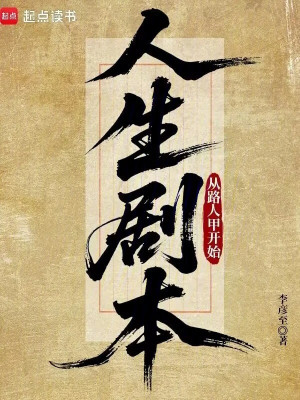 起点 起点读书
人生剧本
从路人甲开始
李彦至◎著